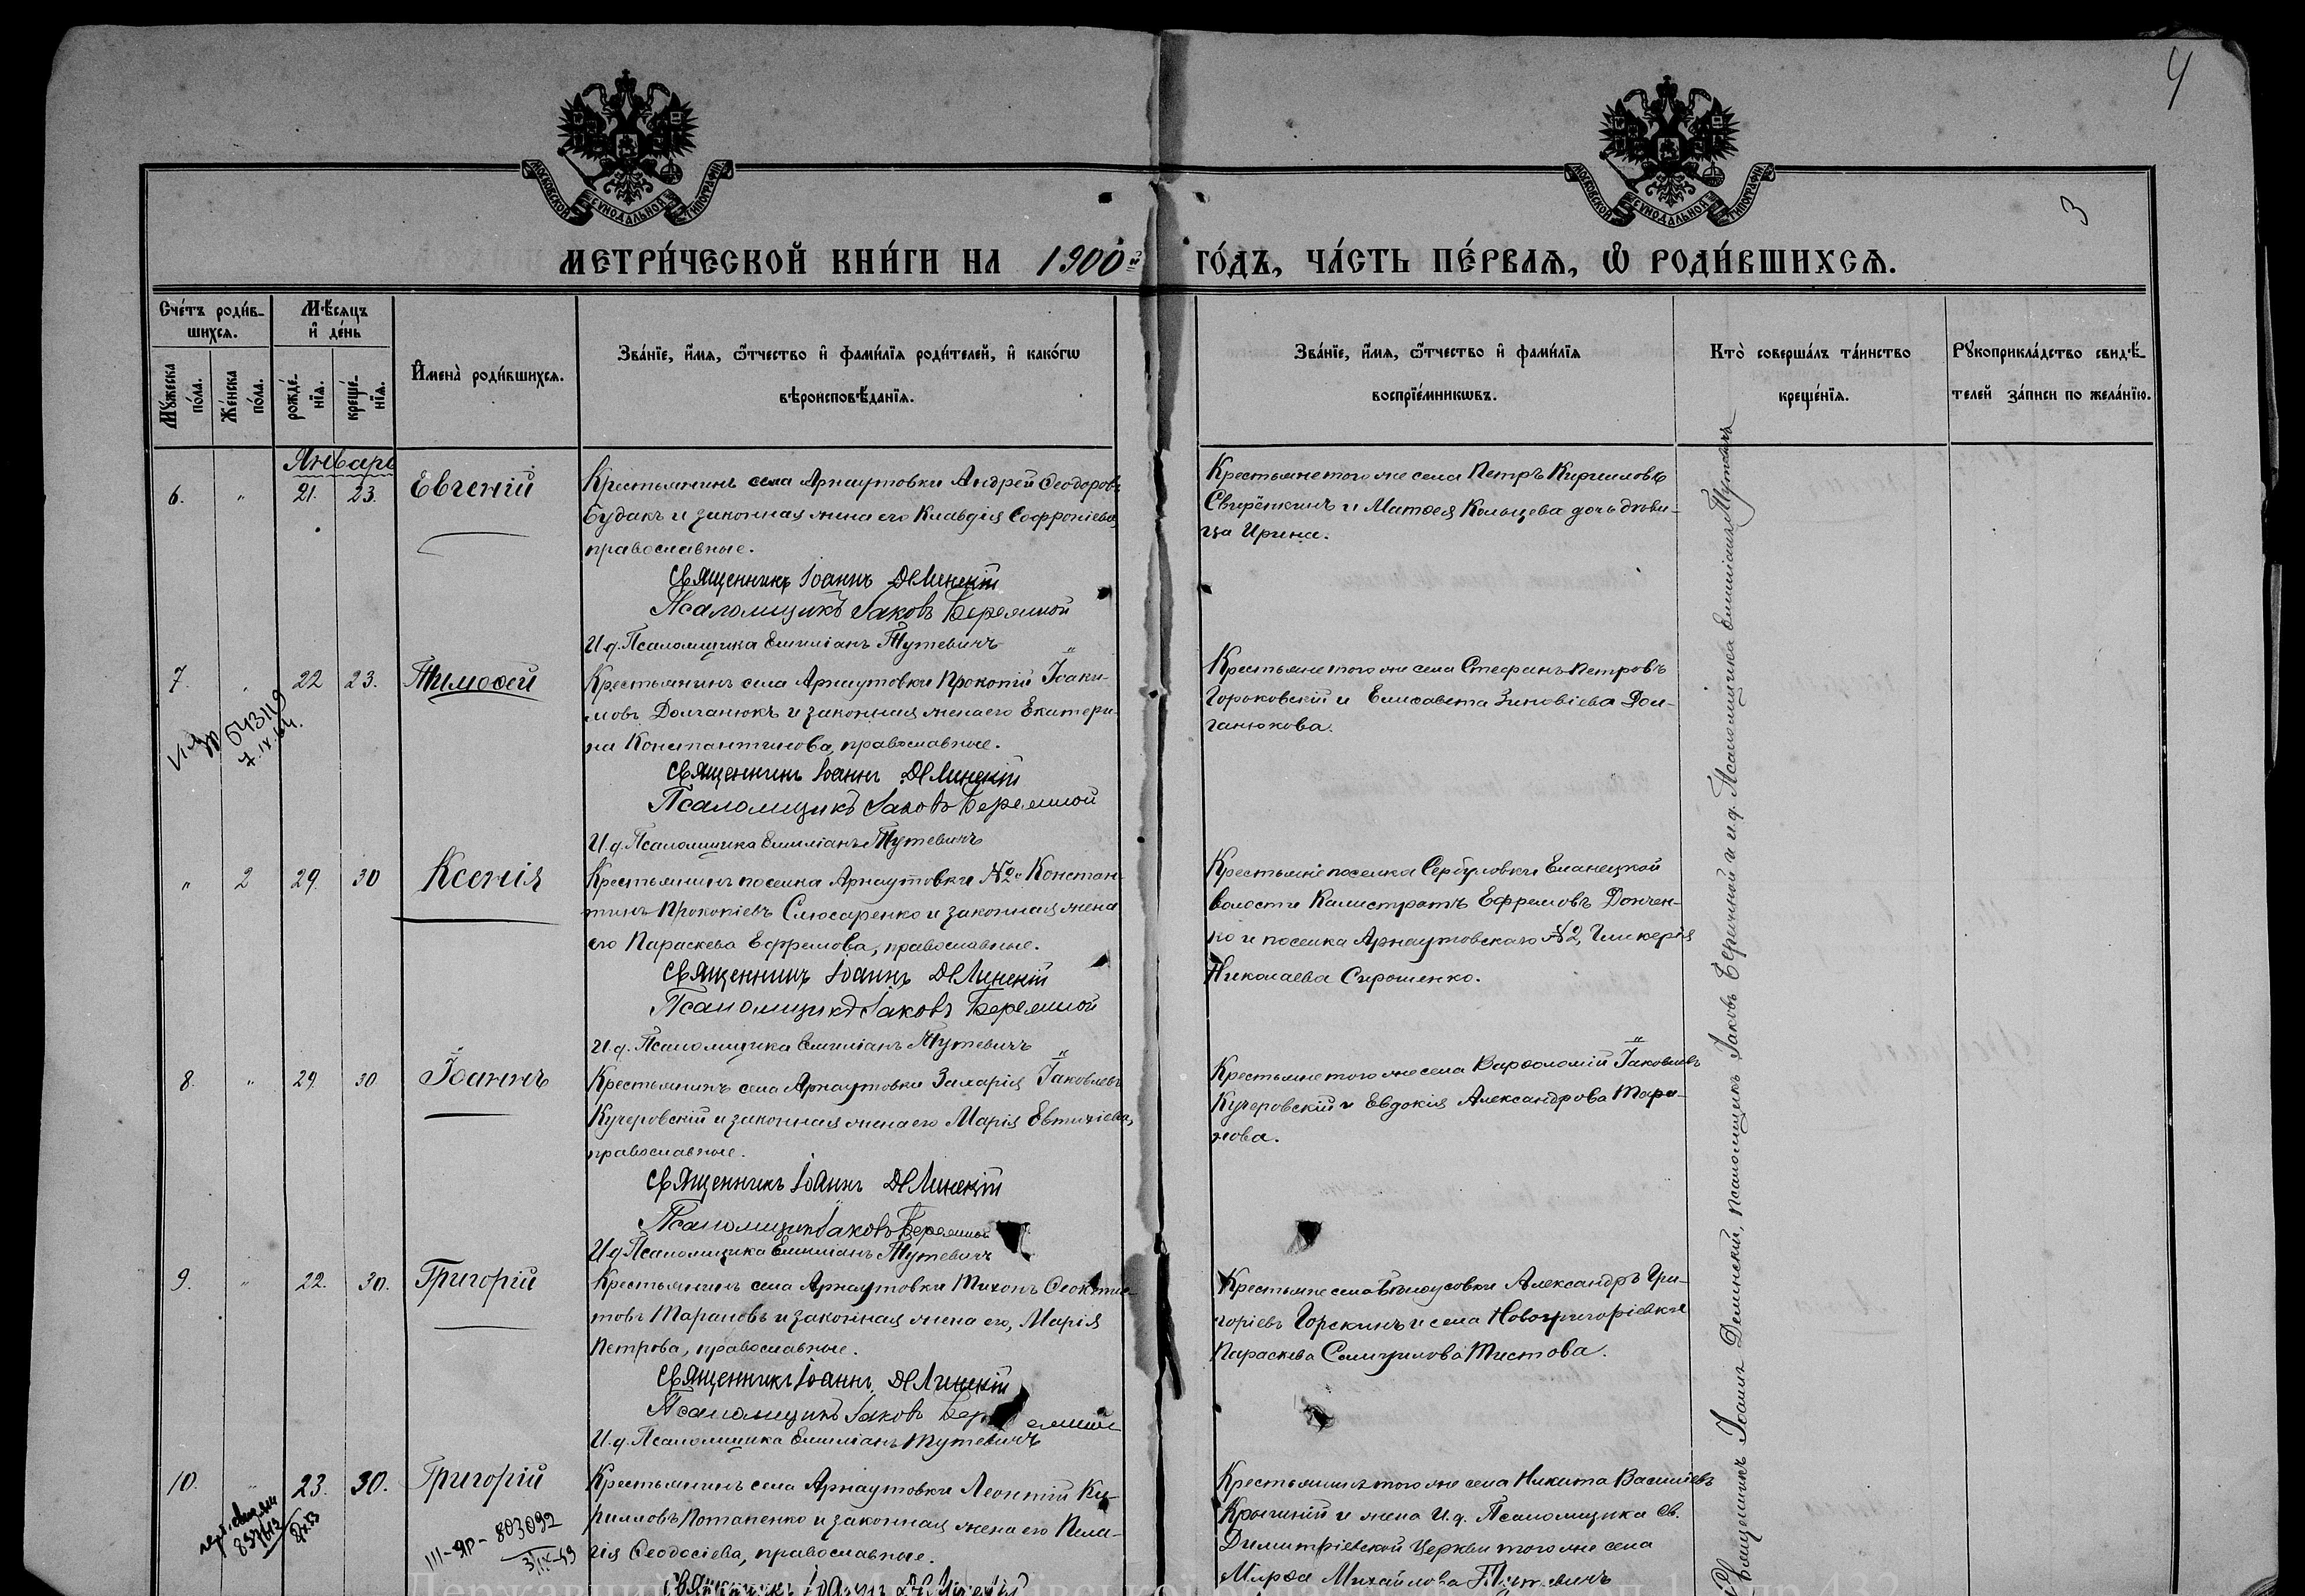 4
3
МОСКОВСКОЙ СѴНОДАЛЬНОЙ ТИПОГРАФІИ.
МОСКОВСКОЙ СѴНОДАЛЬНОЙ ТИПОГРАФІИ.
МЕТРИ́ЧЕСКОЙ КНИ́ГИ НА 1900й ГО́ДЪ, ЧА́СТЬ ПЕ́РВАѦ, Ѡ҆ РОДИ́ВШИХСѦ.
Сче́тъ роди́в-
шихсѧ.
Мꙋ́жеска по́ла.
Же́нска по́ла.
Мѣ́сѧцъ
и҆ де́нь
рожде́-
нїѧ.
креще́-
нїѧ.
И҆мена̀ роди́вшихсѧ.
Зва́нїе, и҆́мѧ, ѻ҆́тчество и҆ фами́лїѧ роди́телей, и҆ како́гѡ
вѣроисповѣ́данїѧ.
Зва́нїе, и҆́мѧ, ѻ҆́тчество и҆ фами́лїѧ
воспрїе́мникѡвъ.
Кто̀ соверша́лъ та́инство
креще́нїѧ.
Рꙋкоприкла́дство свидѣ́-
телей за́писи по жела́нїю.
Январь
6. " 21. 23. Евгеній
Крестьянинъ села Арнаутовки Андрей Ѳеодоровъ
Будакъ и законная жена его Клавдія Софроніева
православные.
Священникъ Іоаннъ Делинскій
Псаломщикъ Іаковъ Бережной
И.д. Псаломщика Емиліанъ Тутевичъ
Крестьяне того же села Петръ Кирилловъ
и Матѳея Кольцева дочь дѣви-
ца Ирина.
7. " 22 23. Тимоѳей
543119
7.IX.
Крестьянинъ села Арнаутовки Прокопій Іоаки-
мовъ Долганюкъ и законная жена его Екатери-
на Константинова, православные.
Священникъ Іоаннъ Делинскій
Псаломщикъ Іаковъ Бережной
И.д. Псаломщика Емиліанъ Тутевичъ
Крестьяне того же села Стефанъ Петровъ
Горьковскій и Елисавета Зиновіева Дол-
ганюкова.
" 2 29. 30 Ксенія
Крестьянинъ поселка Арнаутовки №2й Констан-
тинъ Прокопіевъ Слюсаренко и законная жена
его Параскева Ефремова, православные.
Священникъ Іоаннъ Делинскій
Псаломщикъ Іаковъ Бережной
И.д. Псаломщика Емиліанъ Тутевичъ
Крестьяне поселка Сербуловки Еланецкой
волости Калистратъ Ефремовъ Дончен-
ко и поселка Арнаутовскаго №2, Гликерія
Николаева Сирошенко.
8. " 29. 30 Іоаннъ
Крестьянинъ села Арнаутовки Захарія Іаковлевъ
Кучеровскій и законная жена его Марія Евтихіева,
православные.
Священникъ Іоаннъ Делинскій
Псаломщикъ Іаковъ Бережной
И.д. Псаломщика Емиліанъ Тутевичъ
Крестьяне того же села Варѳоломій Іаковлевъ
Кучеровскій и Евдокія Александрова Тара-
нова.
9. " 22. 30. Григорій
Крестьянинъ села Арнаутовки Тихонъ Ѳеоктис-
товъ Тарановъ и законная жена его, Марія
Петрова, православные.
Священникъ Іоаннъ Делинскій
Псаломщикъ Іаковъ Бережной
И.д. Псаломщика Емиліанъ Тутевичъ
Крестьяне села Бѣлоусовки Александръ Гри-
горіевъ Горскинъ и села Новогригоріевки
Параскева Тистова.
10. " 23. 30. Григорій
857613
III-ЯР-803092
3/IX-49
Крестьянинъ села Арнаутовки Леонтій Ки-
рилловъ Потапенко и законная жена его Пела-
гія Ѳеодосіева, православные.
Священникъ Іоаннъ Делинскій
Крестьянинъ того же села Никита Василіевъ
и жена И.д. Псаломщика Св.
Димитріевской Церкви того же села
Марѳа Михайлова Тутевичъ
Священникъ Іоаннъ Делинскій, псаломщикъ Іаковъ Бережной и и.д. Псаломщика Емиліанъ Тутевичъ